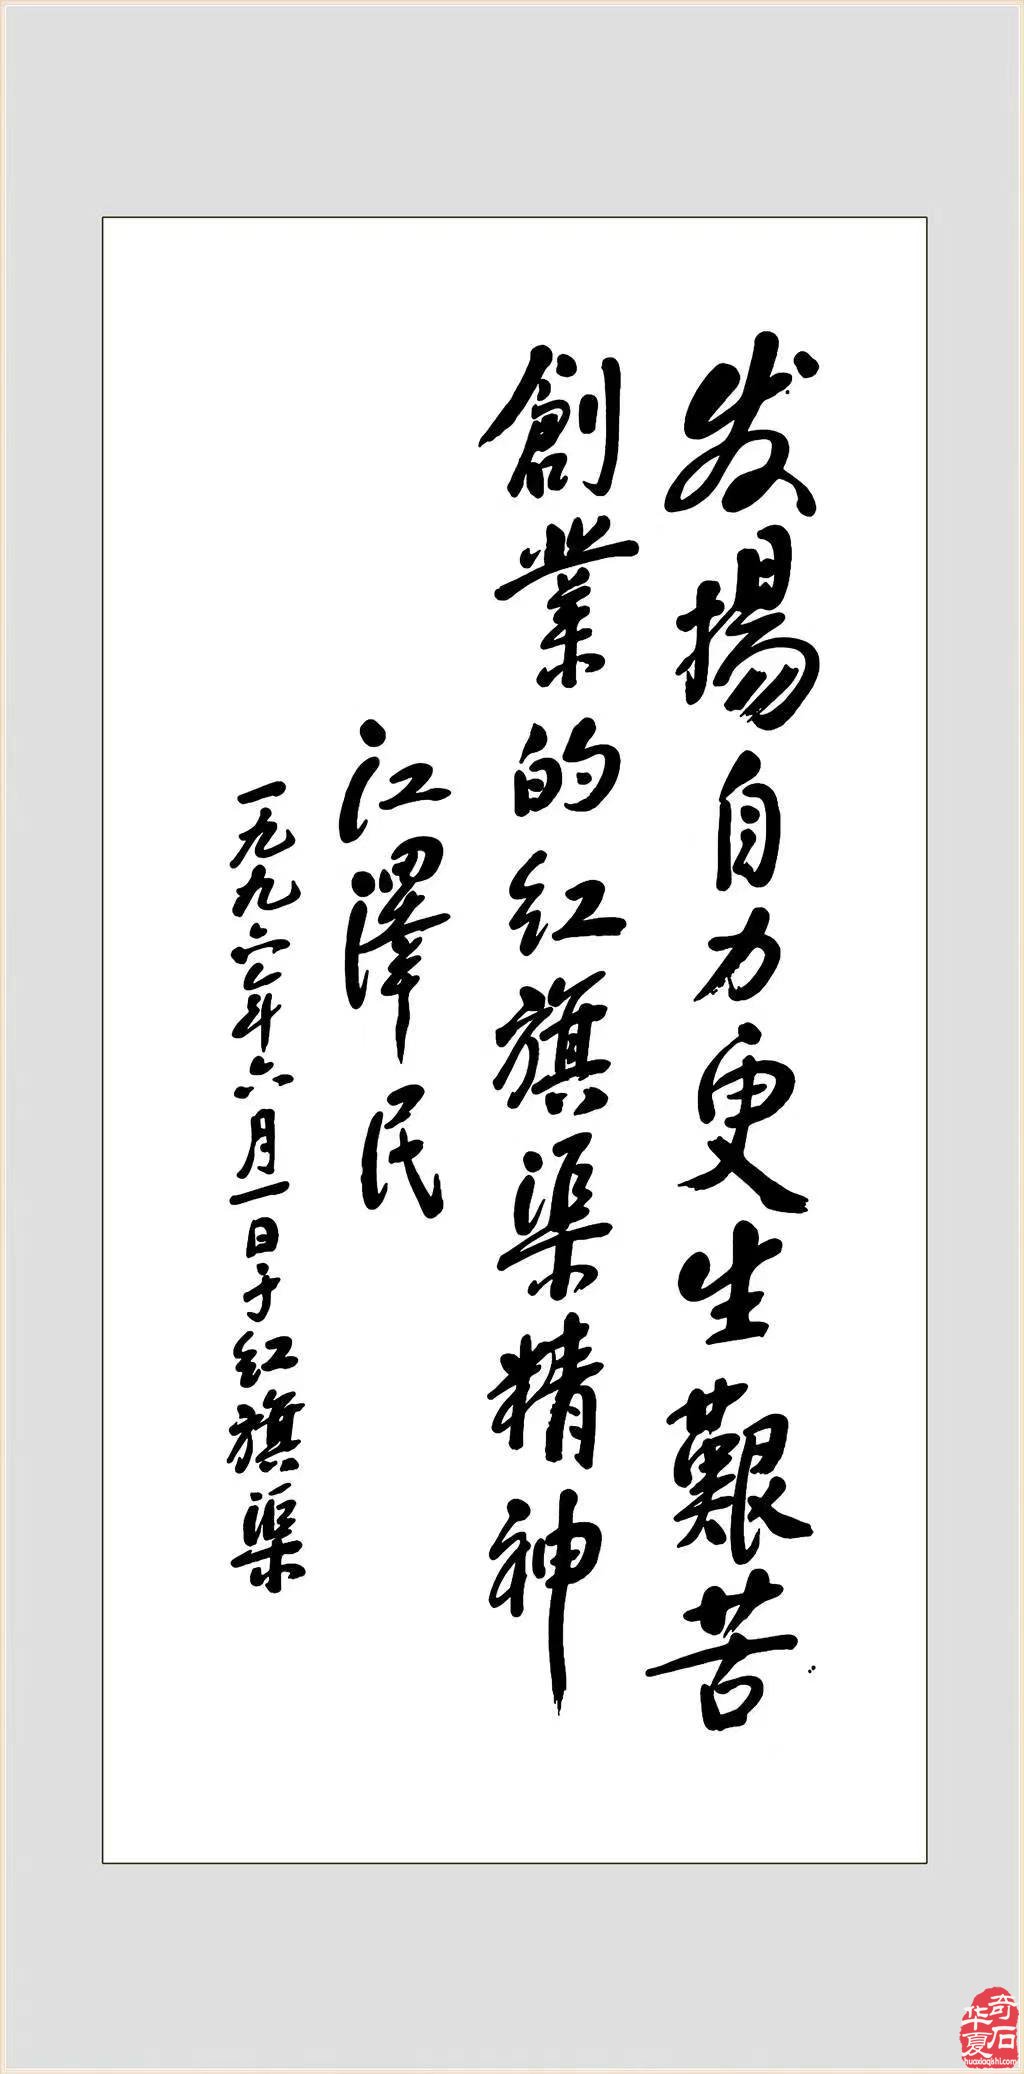 发揚自力更生艱苦
創業的红旗渠精神
江澤民
一九九六年六月一日于红旗渠
华夏奇石
huaxiaqishi.com